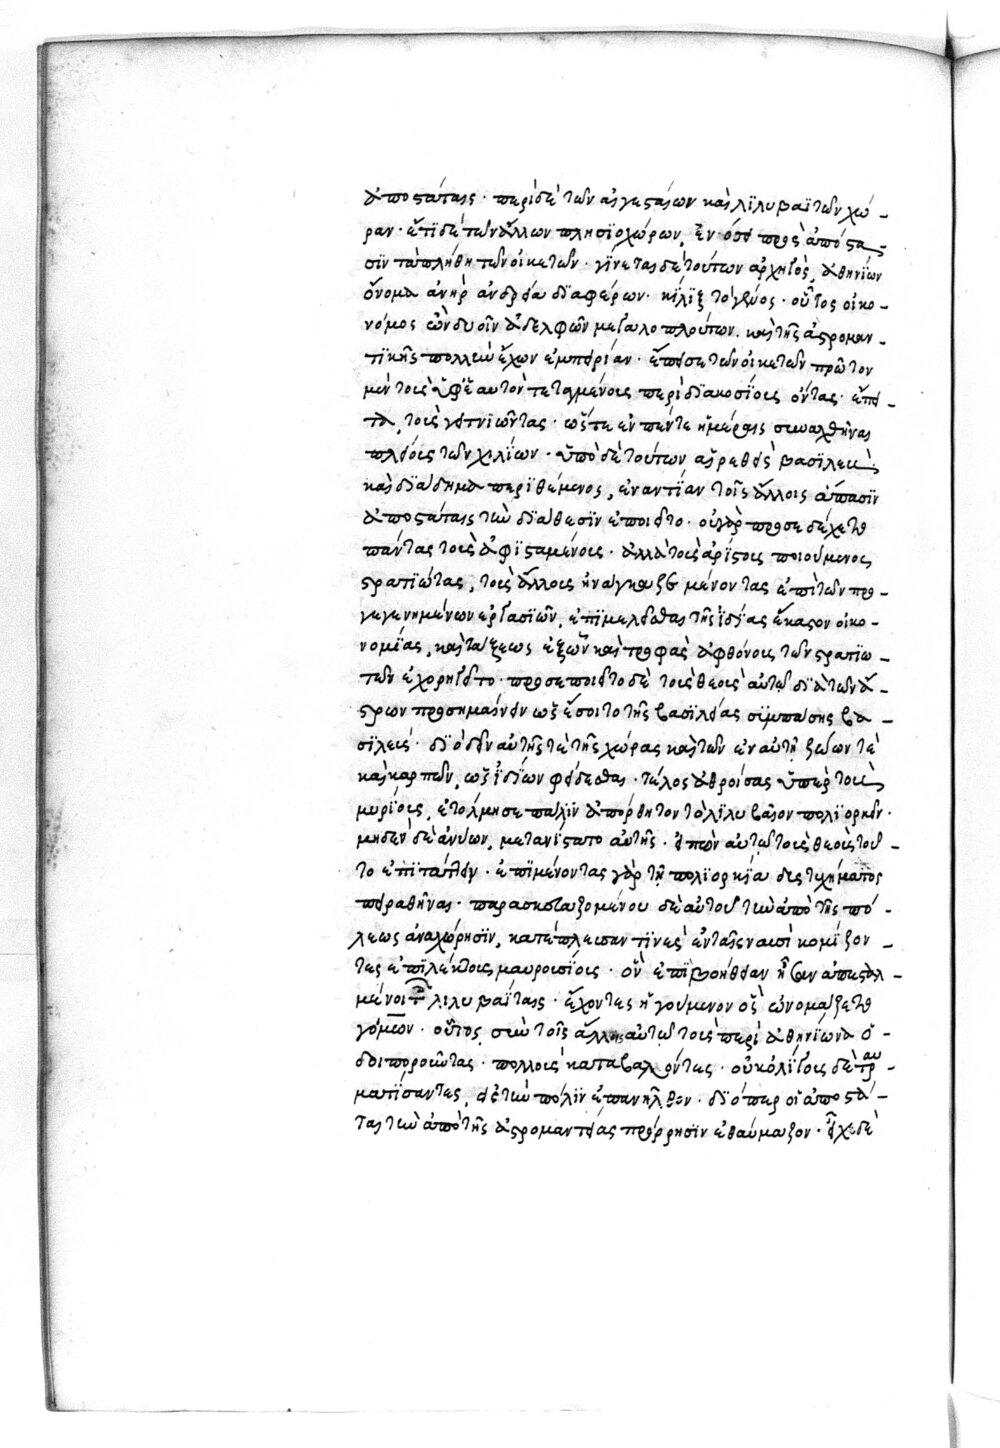 ἀποστάταις· περὶ δὲ τῶν αἰγεσταίων καὶ λιλυβαϊτῶν χώ-
ραν· ἔτι δὲ τῶν ἄλλων πλησιοχώρων, ἐνόσει πρὸς ἀπόστα-
σιν τὰ πλήθη τῶν οἰκετῶν· γίνεται δὲ τούτων ἀρχηγὸς ἀθηνίων
ὄνομα ἀνὴρ ἀνδρεία διαφέρων· κίλιξ τὸ γένος· οὗτος οἰκο-
νόμος ὢν δυοῖν ἀδελφῶν μεγαλοπλούτων. καὶ τῆς ἀστρομαν-
τικῆς πολλὴν ἔχων ἐμπειρίαν· ἔπεισε τῶν οἰκετῶν πρῶτον
μὲν τοὺς ὑφ' ἑαυτὸν τεταγμένους περὶ διακοσίους ὄντας· ἔπει-
τα, τοὺς γειτνιῶντας· ὥστε ἐν πέντε ἡμέραις συναχθῆναι
πλείους τῶν χιλίων· ὑπὸ δὲ τούτων αἱρεθεὶς βασιλεὺς
καὶ διάδημα περιθέμενος, ἐναντίαν τοῖς ἄλλοις ἅπασιν
ἀποστάταις τὴν διάθεσιν ἐποιεῖτο· οὐ γὰρ προσεδέχετο
πάντας τοὺς ἀφισταμένους· ἀλλὰ τοὺς ἀρίστους ποιούμενος
στρατιώτας, τοὺς ἄλλους ἠνάγκαζε μένοντας ἐπὶ τῶν προ-
γεγενημένων ἐργασιῶν, ἐπιμελεῖσθαι τῆς ἰδίας ἕκαστον οἰκο-
νομίας, καὶ τάξεως ἐξ ὧν καὶ τροφὰς ἀφθόνους τῶν στρατιω-
τῶν ἐχορηγεῖτο· προσεποιεῖτο δὲ τοὺς θεοὺς αὐτῷ διὰ τῶν ἄ-
στρων προσημαίνειν ὡς ἔσοιτο τῆς σικελίας συμπάσης βα-
σιλεύς· διὸ δεῖν αὐτῆς τε τῆς χώρας καὶ τῶν ἐν αὐτῇ ζώων τε
καὶ καρπῶν, ὡς ἰδίων φείδεσθαι· τέλος ἀθροίσας ὑπὲρ τοὺς
μυρίους, ἐτόλμησε πόλιν ἀπόρθητον τὸ λιλύβαιον πολιορκεῖν·
μηδὲν δὲ ἀνύων, μετανίστατο αὐτῆς· εἰπὼν αὐτῷ τοὺς θεοὺς τοῦ-
το ἐπιτάττειν· ἐπιμένοντας γὰρ τῇ πολιορκία δυστυχήματος
πειραθῆναι· παρασκευαζομένου δὲ αὐτοῦ τὴν ἀπὸ τῆς πό-
λεως ἀναχώρησιν, κατέπλευσαν τινὲς ἐν ταῖς ναυσὶ κομίζον-
τες ἐπιλέκτους μαυρουσίους· οἳ ἐπὶ βοήθειαν ἦσαν ἀπεσταλ-
μένοι τοῖς λιλυβαΐταις· ἔχοντες ἡγούμενον ὃς ὠνομάζετο
γόμων· οὗτος, σὺν τοῖς ἅμα αὐτῷ τοὺς περὶ ἀθηνίωνα ὁ-
δοιποροῦντας· πολλοὺς καταβαλόντες· οὐκ ὀλίγους δὲ τραυ-
ματίσαντες, εἰς τὴν πόλιν ἐπανῆλθον· διόπερ οἱ ἀποστά-
ται τὴν ἀπὸ τῆς ἀστρομαντείας πρόρρησιν ἐθαύμαζον· εἶχε δὲ